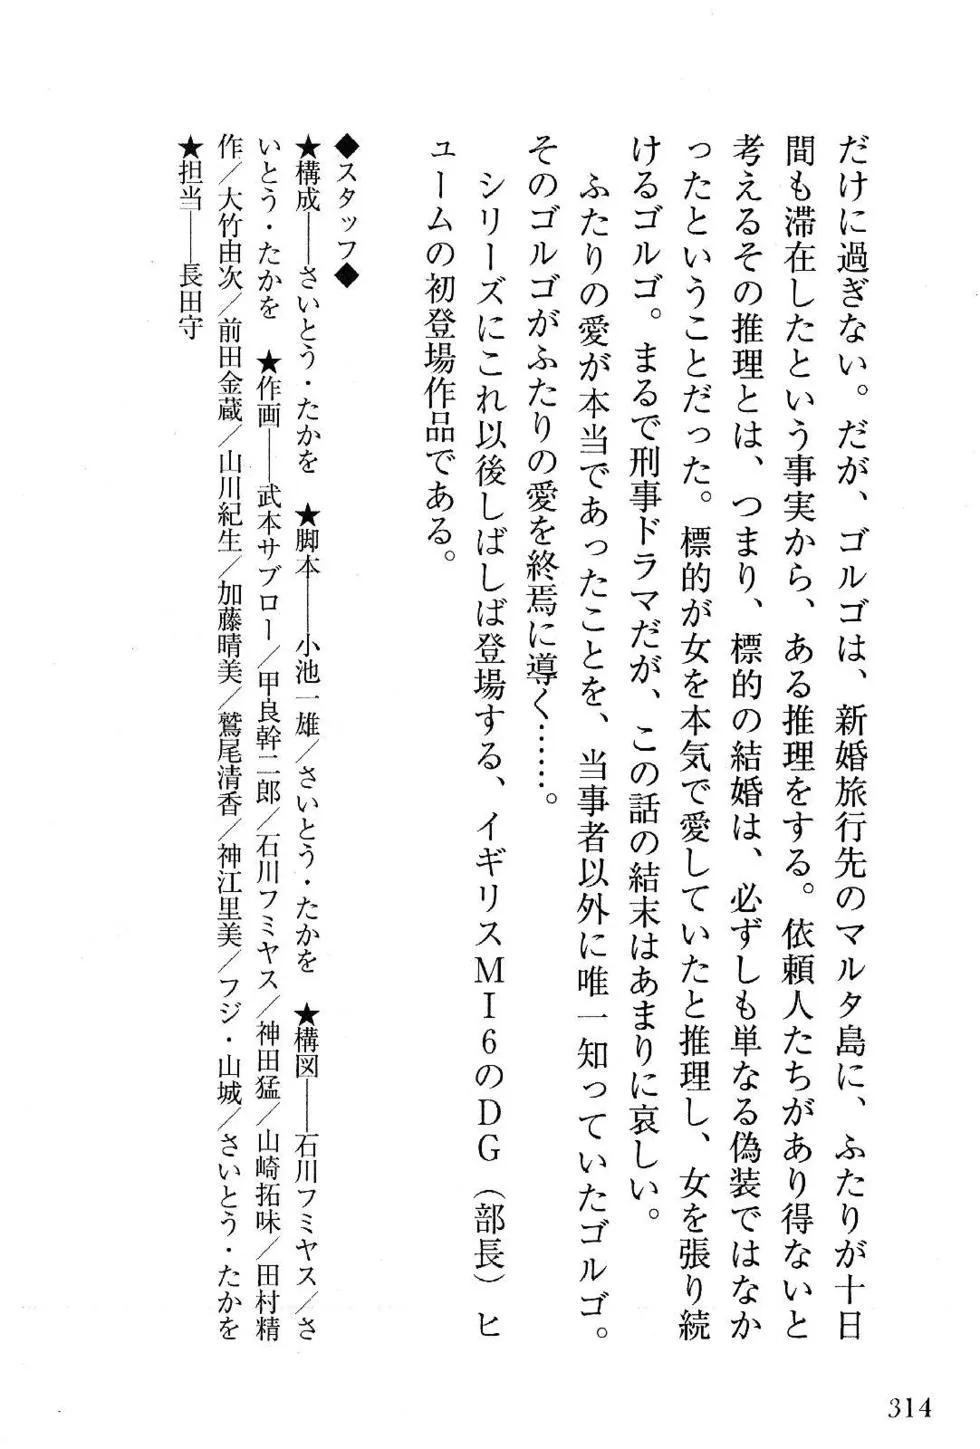 だけに過ぎない。だが、ゴルゴは、新婚旅行先のマルタ島に、ふたりが十日
間も滞在したという事実から、ある推理をする。依頼人たちがあり得ないと
考えるその推理とは、つまり、標的の結婚は、必ずしも単なる偽装ではなか
ったということだった。標的が女を本気で愛していたと推理し、女を張り続
けるゴルゴ。まるで刑事ドラマだが、この話の結末はあまりに哀しい。
ふたりの愛が本当であったことを、当事者以外に唯一知っていたゴルゴ。
そのゴルゴがふたりの愛を終焉に導く……。
シリーズにこれ以後しばしば登場する、イギリスMI6のDG（部長）ヒ
ュームの初登場作品である。
◆スタッフ◆
★構成──さいとう・たかを　★脚本──小池一雄／さいとう・たかを　★構図──石川フミヤス／さ
いとう・たかを　★作画──武本サブロー／甲良幹二郎／石川フミヤス／神田猛／山崎拓味／田村精
作／大竹由次／前田金蔵／山川紀生／加藤晴美／鷲尾清香／神江里美／フジ・山城／さいとう・たかを
★担当──長田守
314